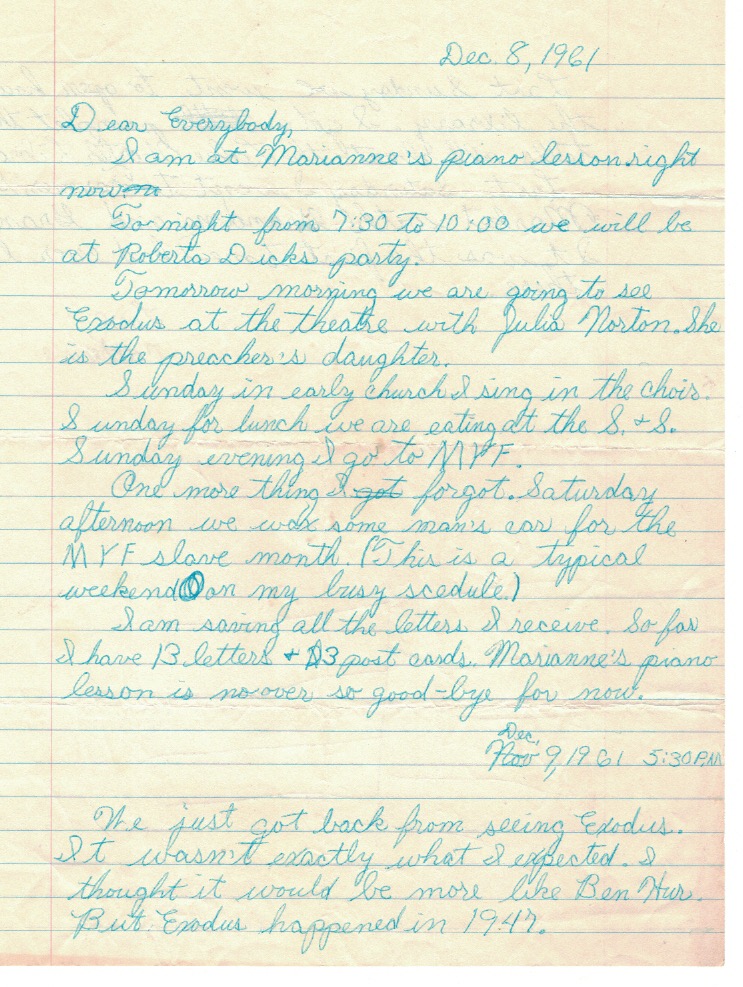 Dec. 8, 1961
Dear Everybody,
I am at Marianne's piano lesson right
now.
To-night from 7:30 to 10:00 we will be
at Roberta Dicks party.
Tomorrow morning we are going to see
Exodus at the theatre with Julia Norton. She
is the preacher's daughter.
Sunday in early church I sing in the choir.
Sunday for lunch we are eating at the S. & S.
Sunday evening I go to MYF.
One more thing I got forgot. Saturday
afternoon we wax some man's car for the
MYF slave month. (This is a typical
weekend on my busy scedule.)
I am saving all the letters I receive. So far
I have 13 letters & 3 post cards. Marianne's piano
lesson is no over so good-bye for now.
Dec.
Nov 9, 1961 5:30 P.M
We just got back from seeing Exodus.
It wasn't exactly what I expected. I
thought it would be more like Ben Hur.
But Exodus happened in 1947.